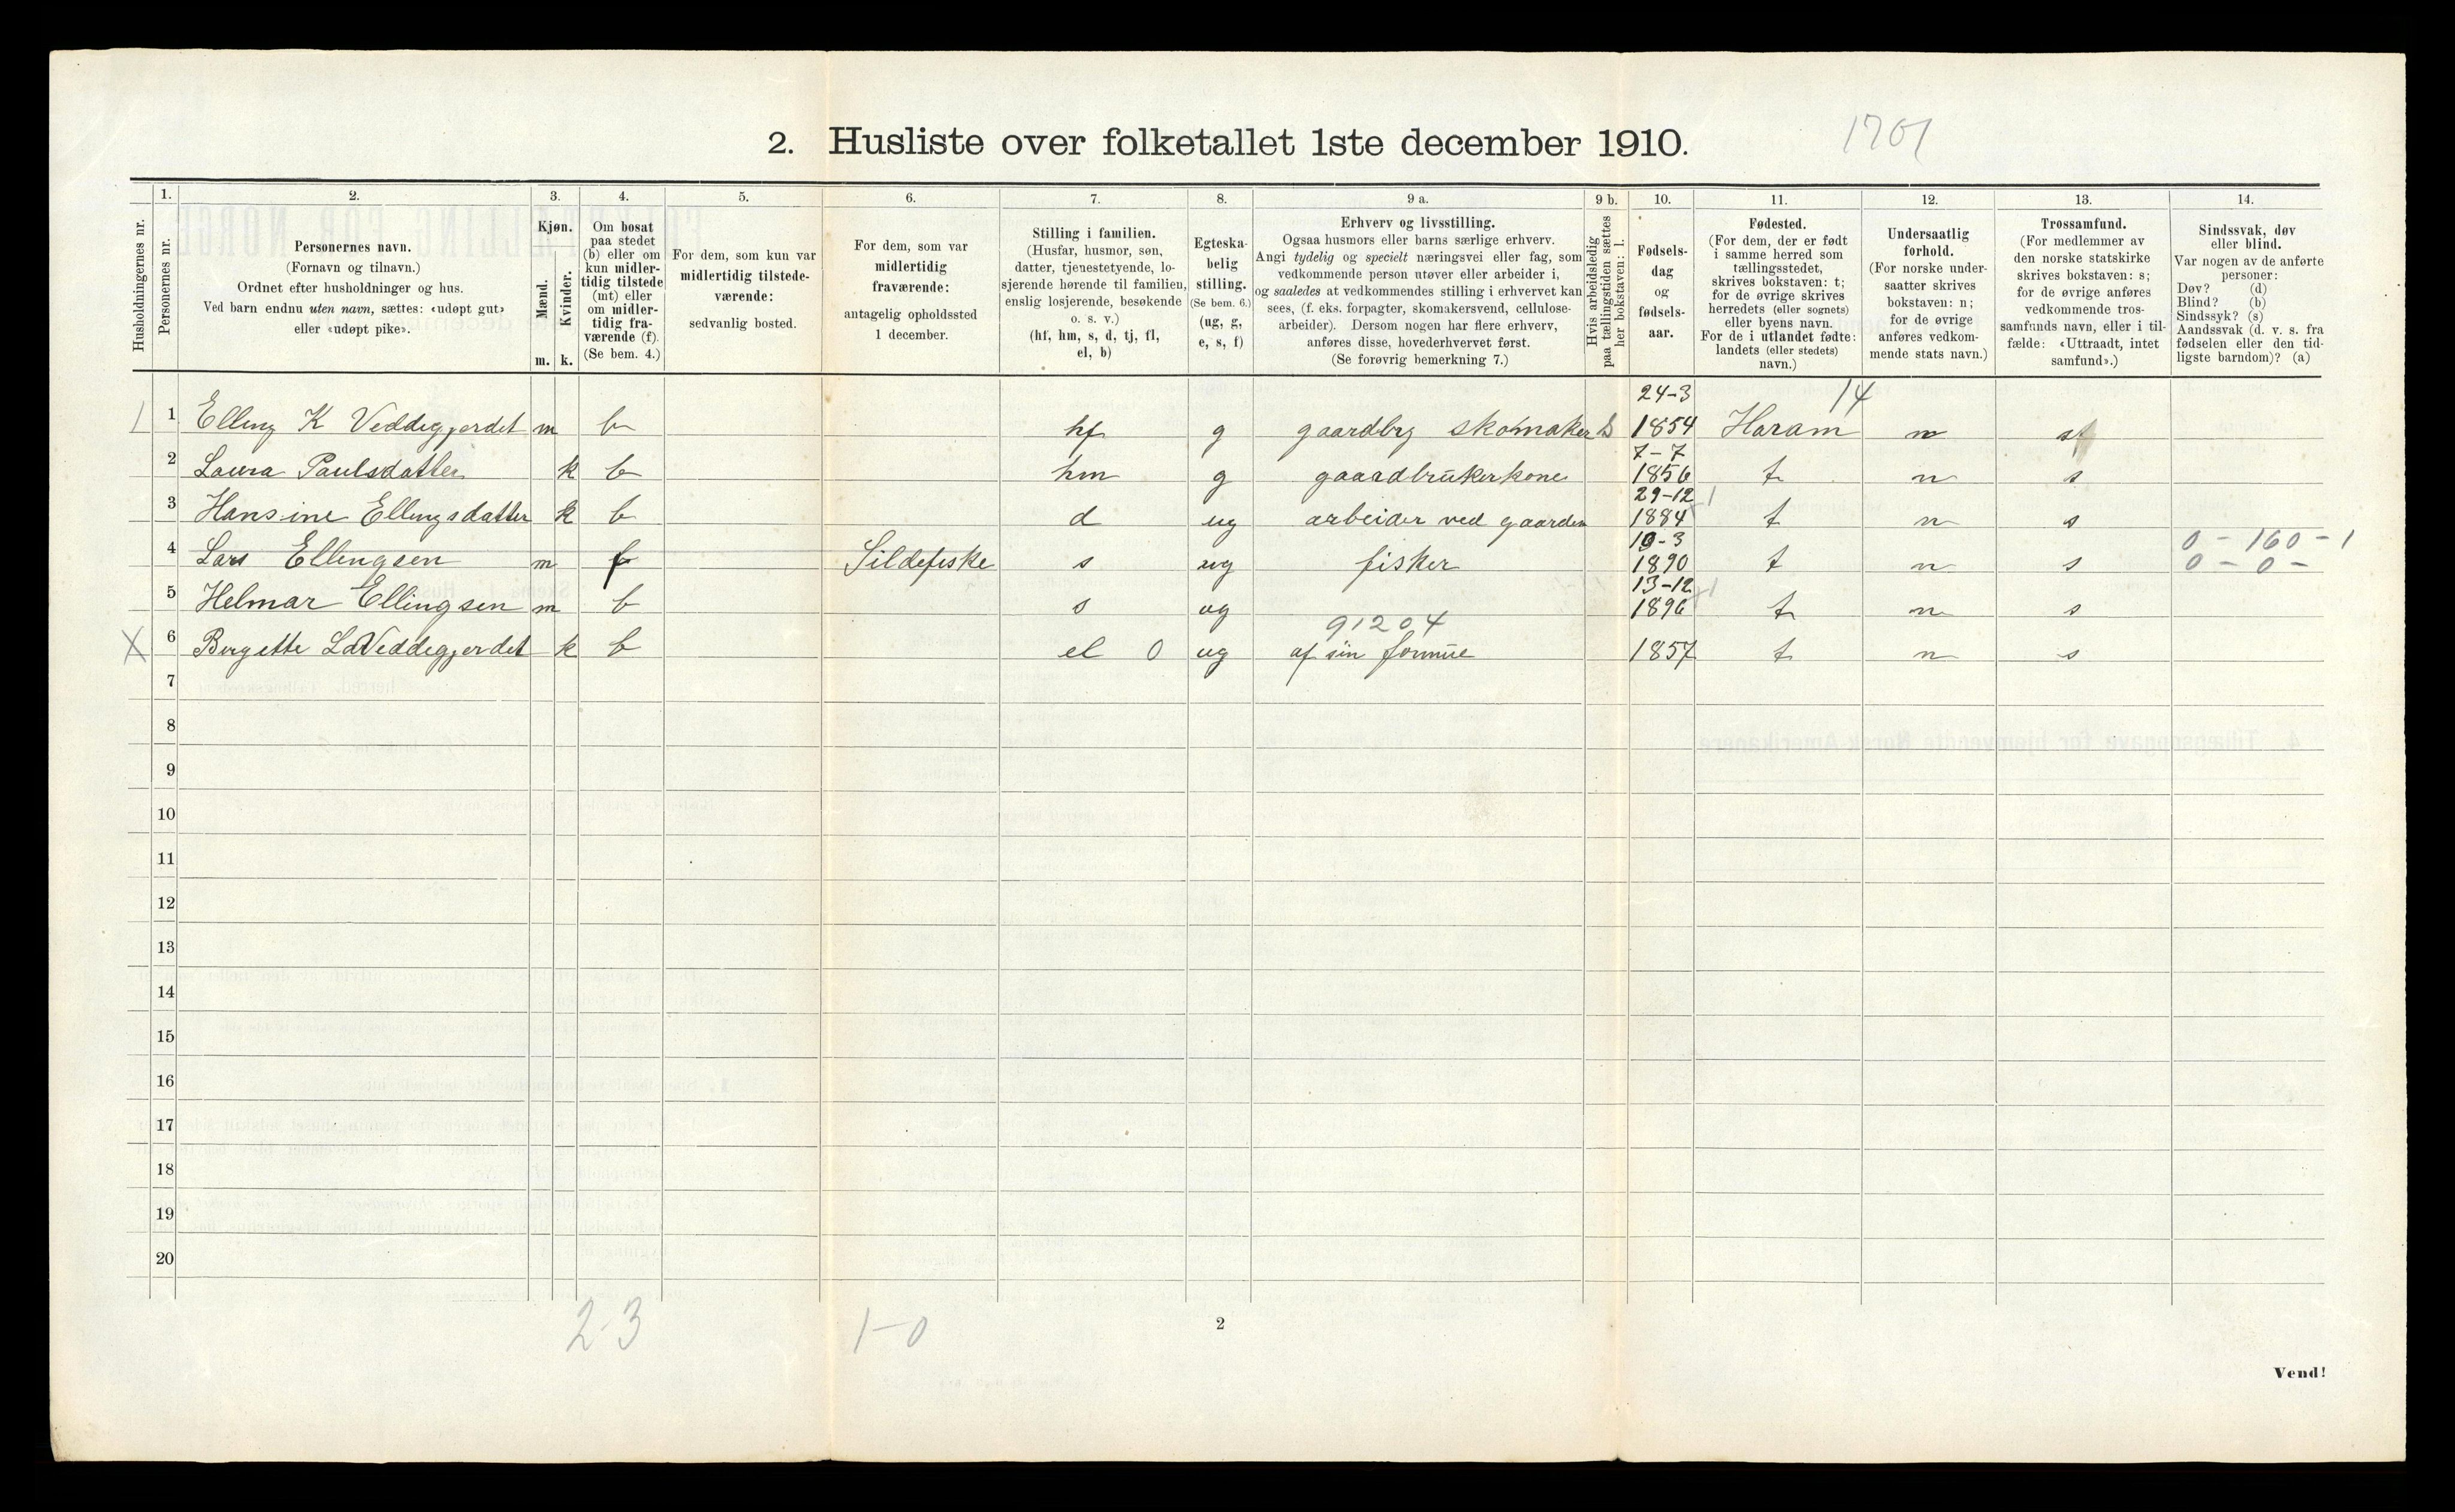 2. Husliste over folketallet 1ste december 1910.
1701
Husholdningernes nr.
1.
Personernes nr.
2.
Personernes navn.
(Fornavn og tilnavn.)
Ordnet efter husholdninger og hus.
Ved barn endnu uten navn, sættes: «udøpt gut»
eller «udøpt pike».
3.
Kjøn.
Mænd.
Kvinder.
m. k.
4.
Om bosat
paa stedet
(b) eller om
kun midler-
tidig tilstede
(mt) eller
om midler-
tidig fra-
værende (f).
(Se bem. 4.)
5.
For dem, som kun var
midlertidig tilstede-
værende:
sedvanlig bosted.
6.
For dem, som var
midlertidig
fraværende:
antagelig opholdssted
1 december.
7.
Stilling i familien.
(Husfar, husmor, søn,
datter, tjenestetyende, lo-
sjerende hørende til familien,
enslig losjerende, besøkende
o. s. v.)
(hf, hm, s, d, tj, fl,
el, b)
8.
Egteska-
belig
stilling.
(Se bem. 6.)
(ug, g,
e, s, f)
9 a.
Erhverv og livsstilling.
Ogsaa husmors eller barns særlige erhverv.
Angi tydelig og specielt næringsvei eller fag, som
vedkommende person utøver eller arbeider i,
og saaledes at vedkommendes stilling i erhvervet kan
sees, (f. eks. forpagter, skomakersvend, cellulose-
arbeider). Dersom nogen har flere erhverv,
anføres disse, hovederhvervet først.
(Se forøvrig bemerkning 7.)
9 b.
Hvis arbeidsledig
paa tællingstiden sættes
her bokstaven: l.
10.
Fødsels-
dag
og
fødsels-
aar.
11.
Fødested.
(For dem, der er født
i samme herred som
tællingsstedet,
skrives bokstaven: t;
for de øvrige skrives
herredets (eller sognets)
eller byens navn.
For de i utlandet fødte:
landets (eller stedets)
navn.)
12.
Undersaatlig
forhold.
(For norske under-
saatter skrives
bokstaven: n;
for de øvrige
anføres vedkom-
mende stats navn.)
13.
Trossamfund.
(For medlemmer av
den norske statskirke
skrives bokstaven: s;
for de øvrige anføres
vedkommende tros-
samfunds navn, eller i til-
fælde: «Uttraadt, intet
samfund».)
14.
Sindssvak, døv
eller blind.
Var nogen av de anførte
personer:
Døv? (d)
Blind? (b)
Sindssyk? (s)
Aandssvak (d. v. s. fra
fødselen eller den tid-
ligste barndom)? (a)
24-3 14
1 Elling K Veddegjerdet m b hf g gaardbrg skomaker 1854 Haram n
7-7
2 Laura Paulsdatter k b hm g gaardbrukerkone 1856 t n s
29-12
3 Hansine Ellingsdatter k b d ug arbeider ved gaarden 1884 t n s
19-3 0 - 160 - 1
4 Lars Ellingsen m f Sildefiske s ug fisker 1890 t n s 0 - 0 -
13-12
5 Helmar Ellingsen m b s ug 1896 t n s
91204
X 6 Bergette LdVeddegjerdet k b el 0 ug af sin formue 1857 t n s
7
8
9
10
11
12
13
14
15
16
17
18
19
20
2-3 1-0
2
Vend!